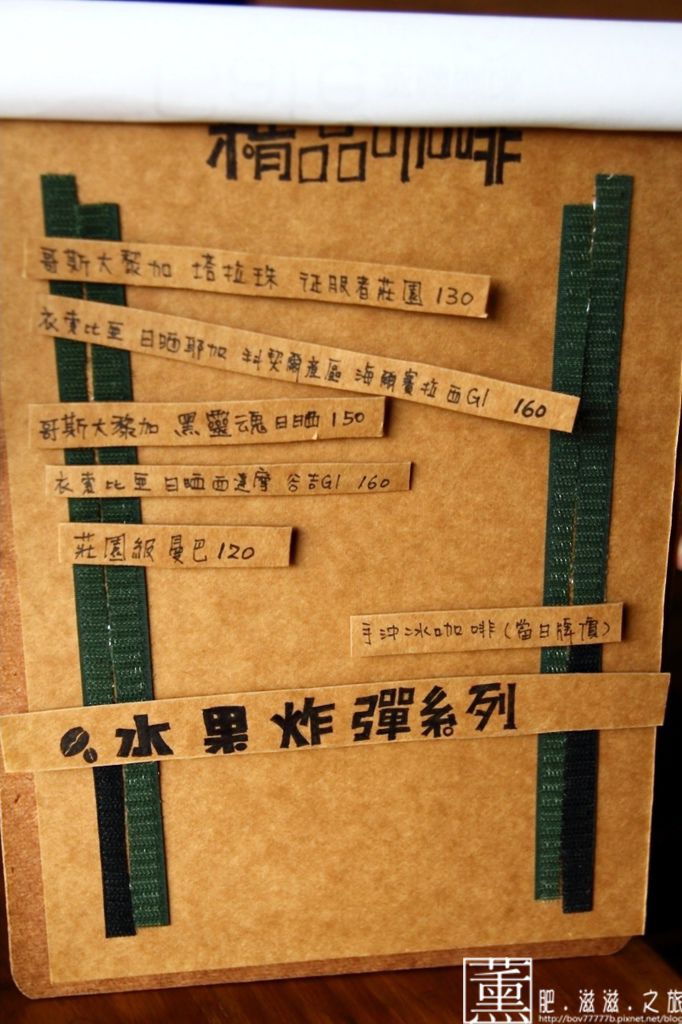 精品咖啡
哥斯大黎加 塔拉珠 征服者莊園 130
衣索比亞 日晒耶加 科契爾產區 海爾賽拉西G1 160
哥斯大黎加 黑靈魂日晒 150
衣索比亞 日晒西達摩 谷吉G1 160
莊園級 曼巴 120
手沖冰咖啡(當日牌價)
水果炸彈系列
薰 肥.滋滋.之旅
http://bov77777b.pixnet.net/blog